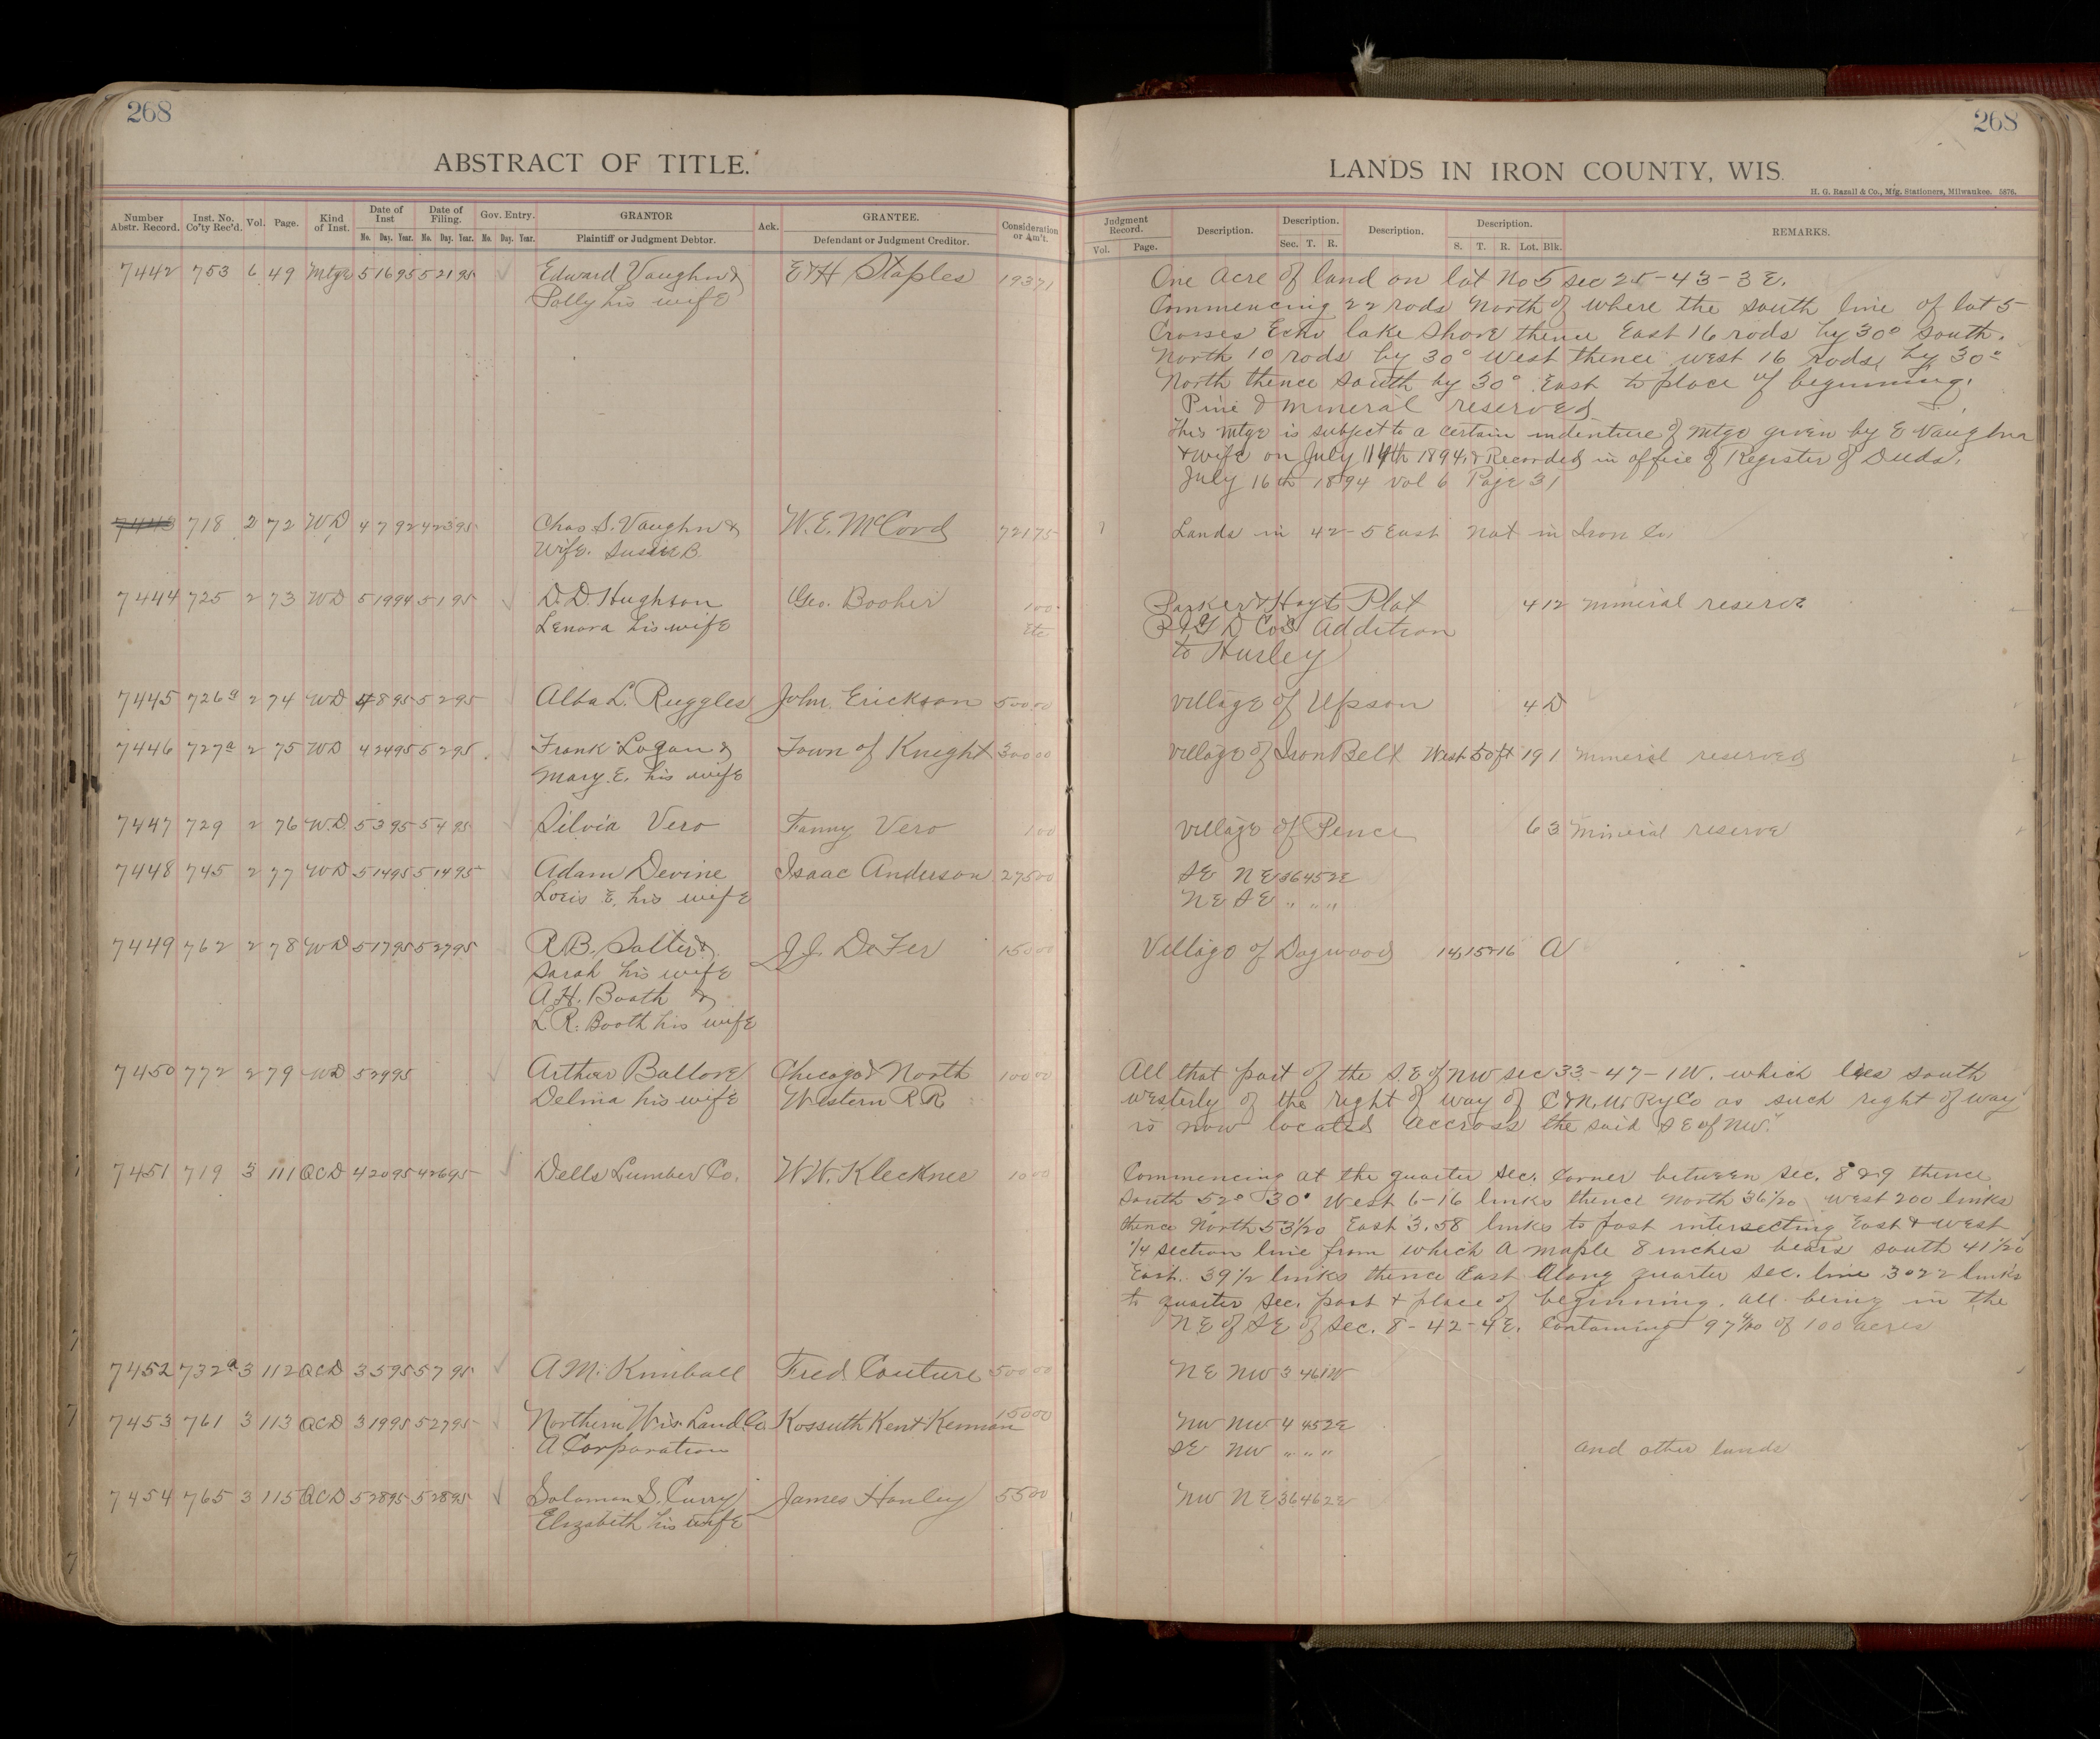 268
268
ABSTRACT OF TITLE.
LANDS IN IRON COUNTY, WIS.
H. G. Razall & Co., Mfg. Stationers, Milwaukee. 5876.
Number Abstr. Record. Inst. No. Co'ty Rec'd. Vol. Page. Kind of Inst. Date of Inst Date of Filing. Gov. Entry. GRANTOR Ack. GRANTEE. Consideration or Am't.
No. Day. Year. No. Day. Year. No. Day. Year. Plaintiff or Judgment Debtor. Defendant or Judgment Creditor.
Judgment Record. Description. Description. Description. Description. REMARKS.
Vol. Page. Sec. T. R. S. T. R. Lot. Blk.
7442 753 6 49 Mtge 5 16 95 5 21 95 Edward Vaughn & E & H Staples 193 71
Polly his wife
One Acre of land on lot No 5 sec 25-43-3 E.
Commencing 22 rods North of where the south line of lot 5
Crosses Echo lake Shore thence East 16 rods by 30° South.
North 10 rods by 30° West thence west 16 rods by 30°
North thence south by 30° East to place of beginning.
Pine & mineral reserved
This Mtge is subject to a certain indenture of Mtge given by E Vaughn
& wife on July 14th 1894 & Recorded in office of Register of Deeds.
July 16th 1894 Vol 6 Page 31
7443 718 2 72 WD 4 7 92 4 23 95 Chas S. Vaughn & W. E. McCord 721 75 Lands in 42-5 East not in Iron Co,
Wife. Susie B.
7444 725 2 73 WD 5 19 94 5 1 95 D. D. Hughson Geo. Booher 1 00 Parker & Hoyts Plat 4 12 Mineral reserve
Lenora his wife Etc Co's Addition
to Hurley
7445 726a 2 74 WD 4 8 95 5 2 95 Alba L. Ruggles John Erickson 500 00 Village of Upson 4 D
7446 727a 2 75 WD 4 24 95 5 2 95 Frank Logan & Town of Knight 300 00 Village of Iron Belt West 50 ft 19 1 Mineral reserved
Mary E. his wife
7447 729 2 76 W.D. 5 3 95 5 4 95 Silvia Vero Fanny Vero 1 00 Village of Pence 6 3 Mineral reserve
7448 745 2 77 WD 5 14 95 5 14 95 Adam Devine Isaac Anderson 275 00 SE NE 36 45 2E
his wife NE SE " " "
7449 762 2 78 WD 5 17 95 5 27 95 R. B. Salter & J. J. DeFer 150 00 Village of Dogwood 14, 15 & 16 A
Sarah his wife
A. H. Booth &
L R. Booth his wife
7450 772 2 79 WD 5 29 95 Arthur Ballore Chicago & North 100 00 All that part of the S.E of NW sec 33-47-1W. which lies south
Delina his wife Western R R westerly of the right of way of C & N. W. Ry Co as such right of way
is now located accross the said SE of NW.
7451 719 3 111 QCD 4 20 95 4 26 95 Dells Lumber Co. W. W. Kleckner 10 00 Commencing at the quarter sec. corner between sec. 8 & 9 thence
South 52° 30° West 6-16 links thence North 36 1/20 West 200 links
thence North 53 1/20 East 3.58 links to post intersecting East & West
1/4 section line from which A maple 8 inches bears south 41 1/20
East. 39 1/2 links thence East Along quarter sec. line 3022 links
to quarter sec. post & place of beginning. All being in the
NE of SE of Sec. 8-42-4E. Containing of 100 acres
7452 732a 3 112 QCD 3 5 95 5 7 95 A. M. Kimball Fred Couture 500 00 NE NW 3 46 1W
7453 761 3 113 QCD 3 19 95 5 27 95 Northern Wis. Land Co. Kossuth Kent Kennan 150 00 NW NW 4 45 2E
A Corporation SE NW " " " and other lands
7454 765 3 115 QCD 5 28 95 5 28 95 Solomon S. Curry James Hanley 55 00 NW NE 36 46 2E
Elizabeth his wife